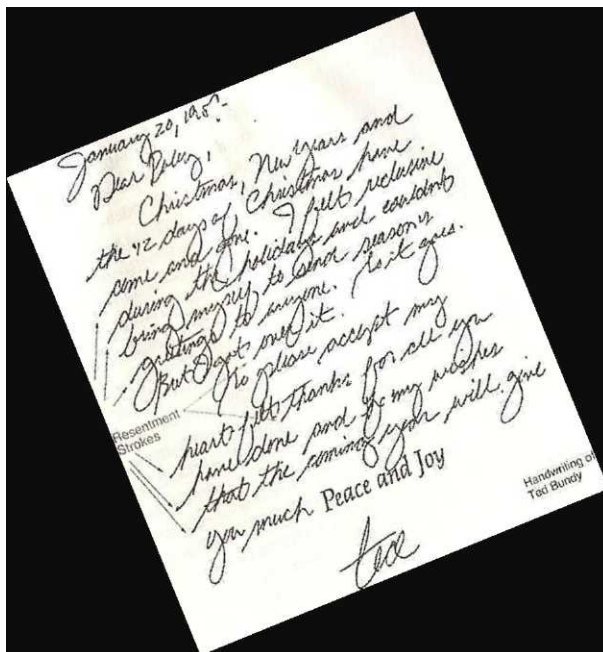 January 20, 198
Dear
Christmas, New Years and
the 12 days of Christmas have
come and gone. I felt reclusive
during the holidays and couldn't
bring myself to send season's
greetings to anyone. So it goes.
But I got over it.
So please accept my
heart felt thanks for all you
have done and my wishes
that the coming year will give
you much Peace and Joy
ted
Resentment
Strokes
Handwriting of
Ted Bundy